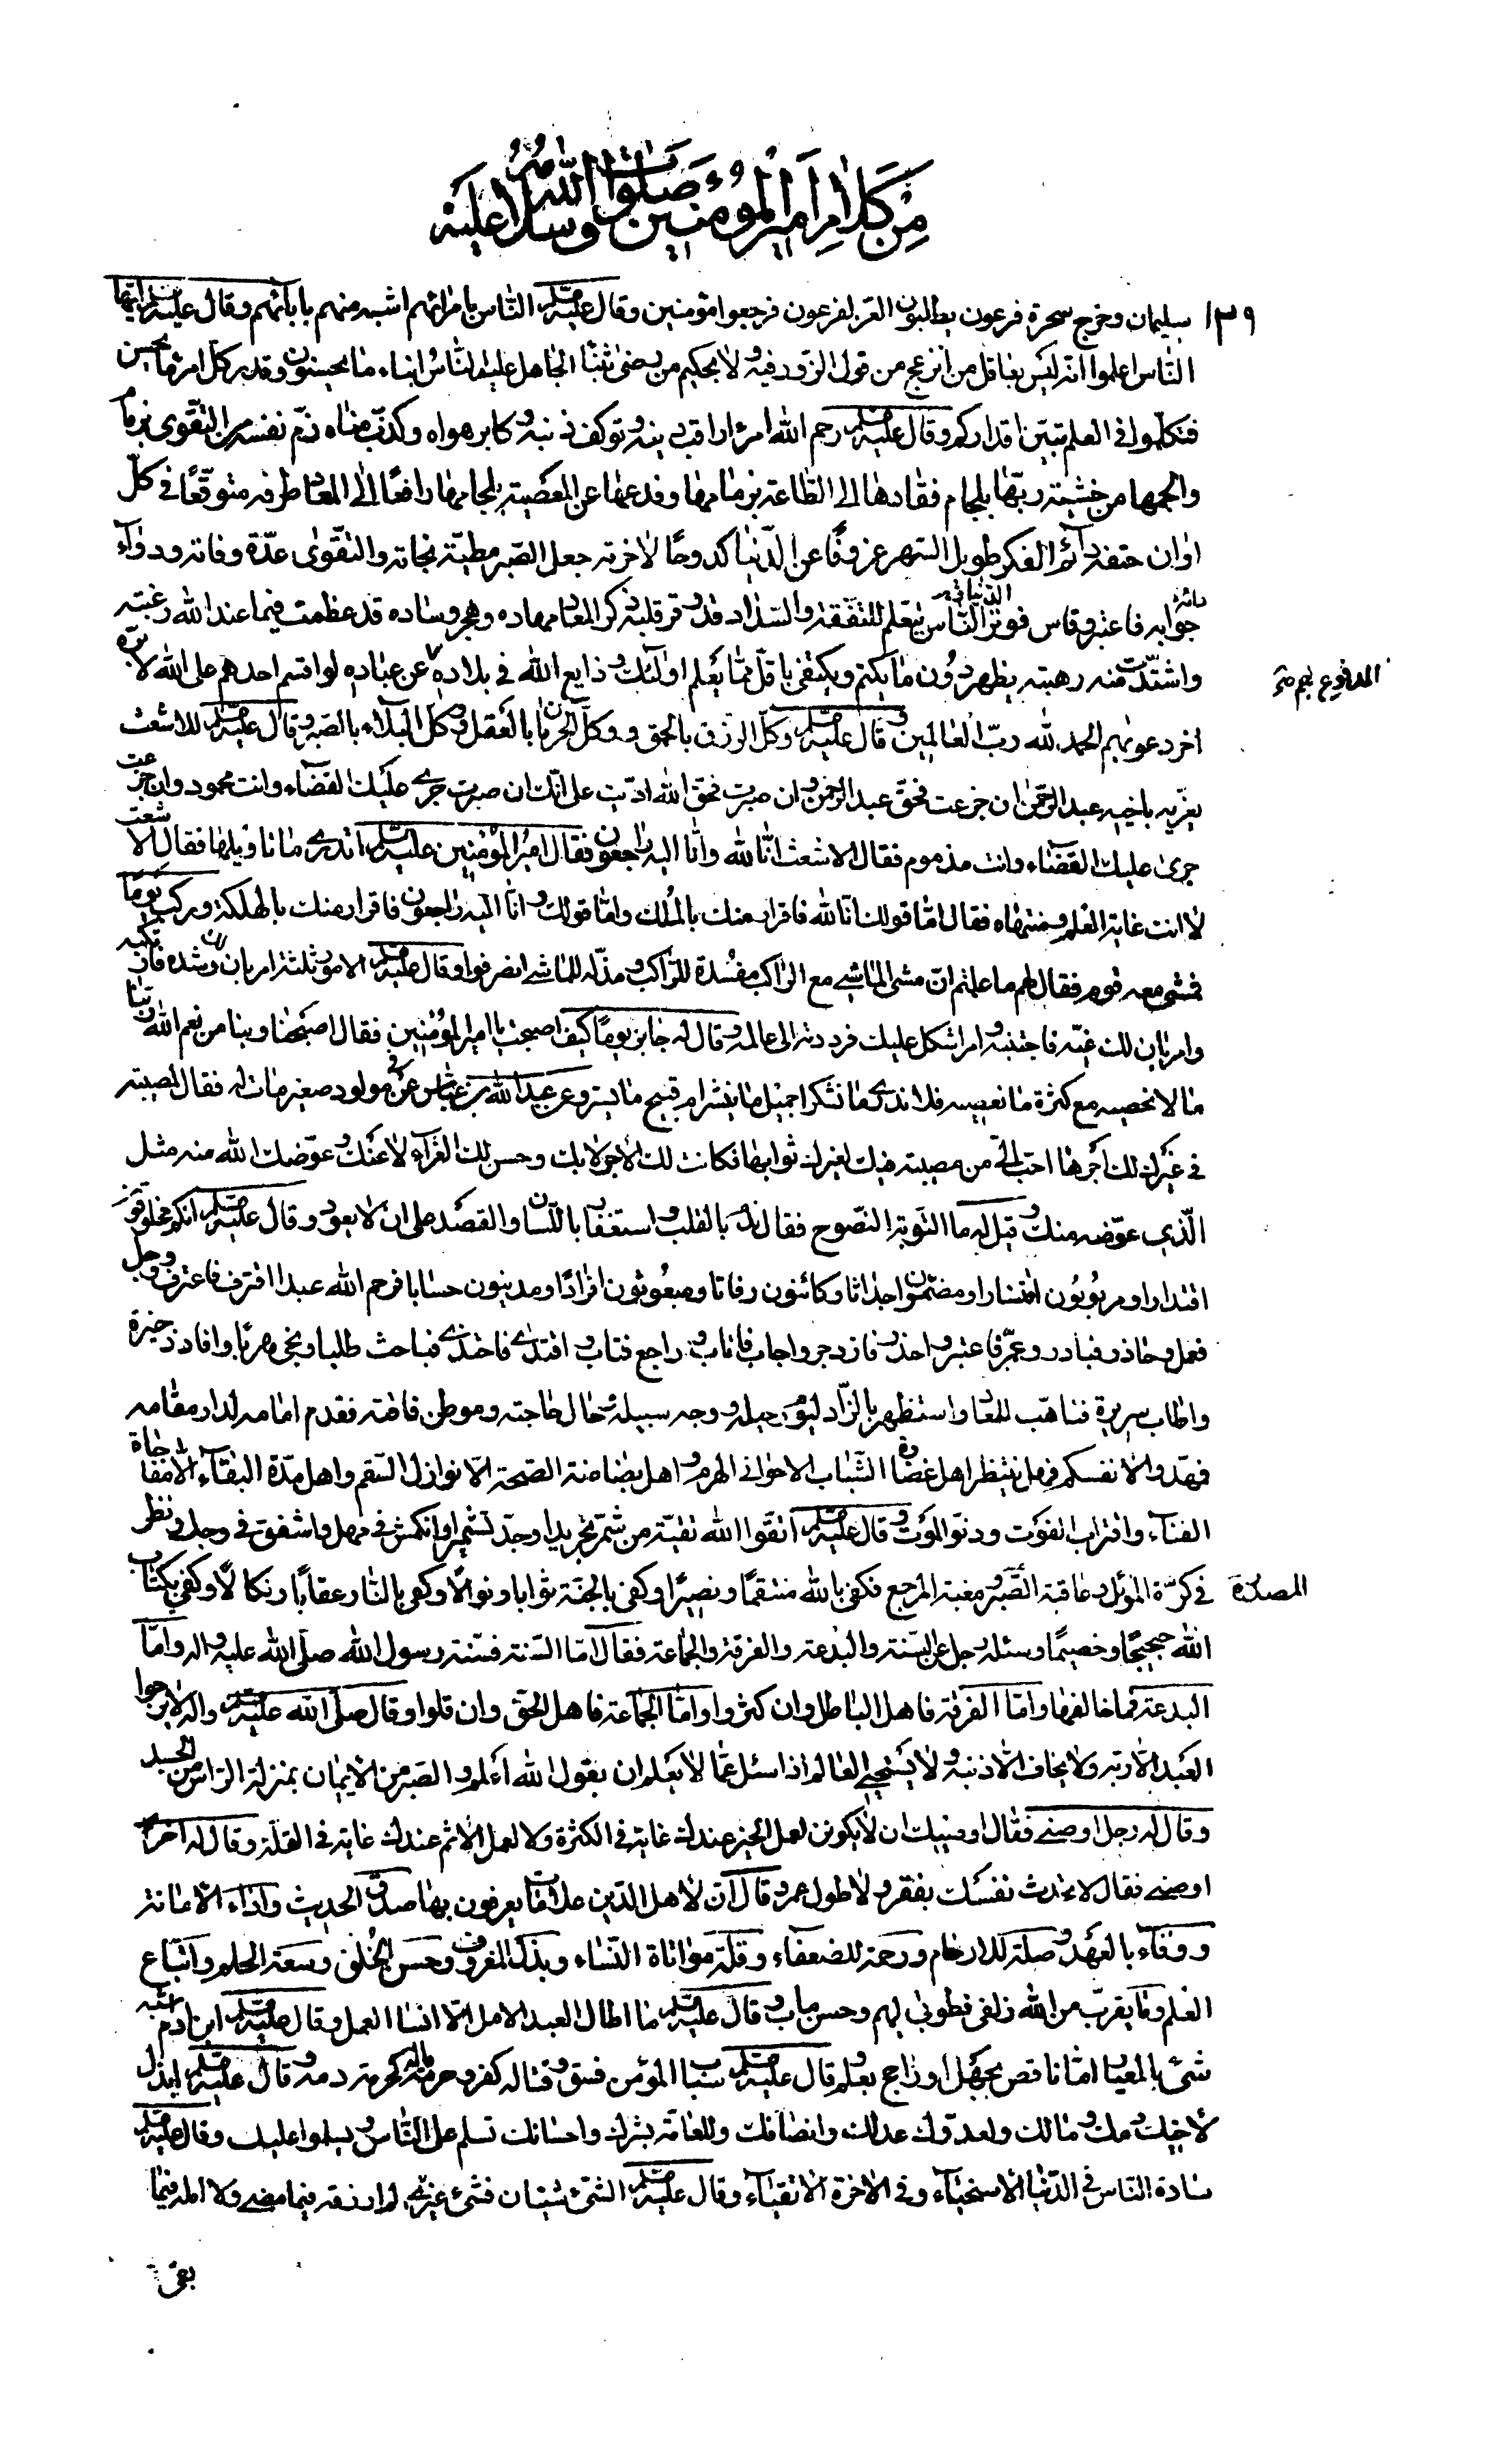 من كلام امير المؤمنين صلوات الله وسلامه عليه
١٣٩
سليمان وخرج سحرة فرعون يطلبون العز لفرعون فرجعوا مؤمنين وقال عليه السلم الناس بامرائهم اشبه منهم بابائهم وقال عليه السلم ايها
الناس اعلموا انه ليس بعاقل من انزعج من قول الزور فيه ولا بحكيم من رضى بثناء الجاهل عليه الناس ابناء ما يحسنون وقدر كل امرء ما يحسن
فتكلموا فى العلم تبين اقداركم وقال عليه السلم رحم الله امرءا راقب ربه وتوكف ذنبه وكابر هواه وكذب مناه زم نفسه من التقوى بزمام
والجمها من خشية ربها بلجام فقادها الى الطاعة بزمامها وقدعها عن المعصية بلجامها رافعا الى المعاد طرفه متوقعا فى كل
اوان حتفه دائم الفكر طويل السهر عزوفا عن الدنيا كدوحا لاخرته جعل الصبر مطية نجاته والتقوى عدة وفاته ودواء
جوابه فاعتبر وقاس فوتر الدنيا والناس يتعلم للتفقه والسداد قد وقر قلبه ذكر المعاد مهاده وهجر وساده قد عظمت فيما عند الله رغبته
واشتدت منه رهبته يظهر دون ما يكتم ويكتفى باقل مما يعلم اولئك ودايع الله فى بلاده المدفوع بهم عن عباده لو اقسم احدهم على الله لابره
اخر دعوتهم الحمد لله رب العالمين وقال عليه السلم وكل الرزق بالحمق ووكل الحرمان بالعقل ووكل البلاء بالصبر وقال عليه السلم للاشعث
يعزيه باخيه عبد الرحمن ان جزعت فحق عبد الرحمن وان صبرت فحق الله اديت على انك ان صبرت جرى عليك القضاء وانت محمود وان جزعت
جرى عليك القضاء وانت مذموم فقال الاشعث انا لله وانا اليه راجعون فقال امير المؤمنين عليه السلم اتدرى ما تاويلها فقال الاشعث
لا انت غاية العلم ومنتهاه فقال اما قولك انا لله فاقرار منك بالملك واما قولك وانا اليه راجعون فاقرار منك بالهلكة وركب يوما
فمشى معه قوم فقال لهم ما علمتم ان مشى الماشى مع الراكب مفسدة للراكب ومذلة للماشى انصرفوا وقال عليه السلم الامور ثلثة امر بان لك رشده فارتكبه
وامر بان لك غيه فاجتنبه وامر اشكل عليك فرددته الى عالمه وقال له جابر يوما كيف اصبحت يا امير المؤمنين فقال اصبحنا وبنا من نعم الله ربنا
ما لا نحصيه مع كثرة ما نعصيه فلا ندرى ما نشكر اجميل ما ينشر ام قبيح ما يستر وعزى عبد الله بن عباس عن مولود صغير مات له فقال لمصيبة
فى غيرك لك اجرها احب الى من مصيبة فيك لغيرك ثوابها فكانت لك الاجر لا بك وحسن لك العزاء لا عنك وعوضك الله منه مثل
الذى عوضه منك وقيل له ما التوبة النصوح فقال ندم بالقلب واستغفار باللسان والقصد على ان لا يعود وقال عليه السلم انكم مخلوقون
اقتدارا ومربوبون اقتسارا ومضمنون اجداثا وكائنون رفاتا ومبعوثون افرادا ومدينون حسابا فرحم الله عبدا اقترف فاعترف ووجل
فعمل وحاذر فبادر وعمر فاعتبر وحذر فازدجر واجاب فاناب وراجع فتاب واقتدى فاحتذى فباحث طلبا ونجى هربا وافاد ذخيرة
واطاب سريرة فتاهب للمعاد واستظهر بالزاد ليوم رحيله ووجه سبيله وحال حاجته وموطن فاقته فقدم امامه لدار مقامه
فمهدوا لانفسكم فهل ينتظر اهل غضارة الشباب الا حوانى الهرم واهل بضاضة الصحة الا نوازل السقم واهل مدة البقاء الا مفاجاة
الفناء واقتراب الفوت ودنو الموت وقال عليه السلم اتقوا الله تقية من شمر تجريدا وجد تشميرا وانكمش فى مهل واشفق فى وجل ونظر
فى كرة الموئل وعاقبة المصدر ومغبة المرجع فكفى بالله منتقما ونصيرا وكفى بالجنة ثوابا ونوالا وكفى بالنار عقابا ونكالا وكفى بكتاب
الله حجيجا وخصيما وسئله رجل عن السنة والبدعة والفرقة والجماعة فقال اما السنة فسنة رسول الله صلى الله عليه واله واما
البدعة فما خالفها واما الفرقة فاهل الباطل وان كثروا واما الجماعة فاهل الحق وان قلوا وقال صلى الله عليه واله لا يرجوا
العبد الا ربه ولا يخاف الا ذنبه ولا يستحيى العالم اذا سئل عما لا يعلم ان يقول الله اعلم والصبر من الايمان بمنزلة الراس من الجسد
وقال له رجل اوصنى فقال اوصيك ان لا يكونن لعمل الخير عندك غاية فى الكثرة ولا لعمل الاثم عندك غاية فى القلة وقال له اخر
اوصنى فقال لا تحدث نفسك بفقر ولا طول عمر وقال ان لاهل الدين علامات يعرفون بها صدق الحديث واداء الامانة
ووفاء بالعهد وصلة للارحام ورحمة للضعفاء وقلة مواتاة النساء وبذل المعروف وحسن الخلق وسعة الحلم واتباع
العلم وما يقرب من الله زلفى فطوبى لهم وحسن ماب وقال عليه السلم ما اطال العبد الامل الا انساه العمل وقال عليه السلم ابن ادم اشبه
شىء بالمعيار اما ناقص بجهل او راجح بعلم وقال عليه السلم سباب المؤمن فسق وقتاله كفر وحرمة ماله كحرمة دمه وقال عليه السلم ابذل
لاخيك دمك ومالك ولعدوك عدلك وانصافك وللعامة بشرك واحسانك تسلم على الناس يسلموا عليك وقال عليه السلم
سادة الناس فى الدنيا الاسخياء وفى الاخرة الاتقياء وقال عليه السلم الشىء شيئان فشىء غيرى لم ارزقه فيما مضى ولا امله فيما
بقى